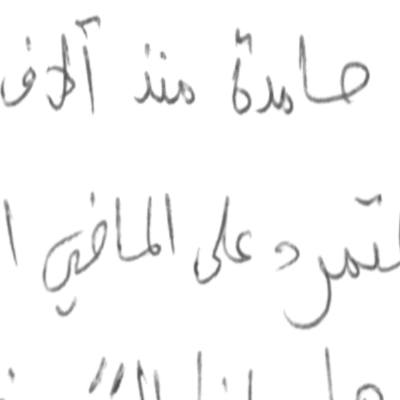 صامدة منذ آلاف
لتمرد على الماضي ا